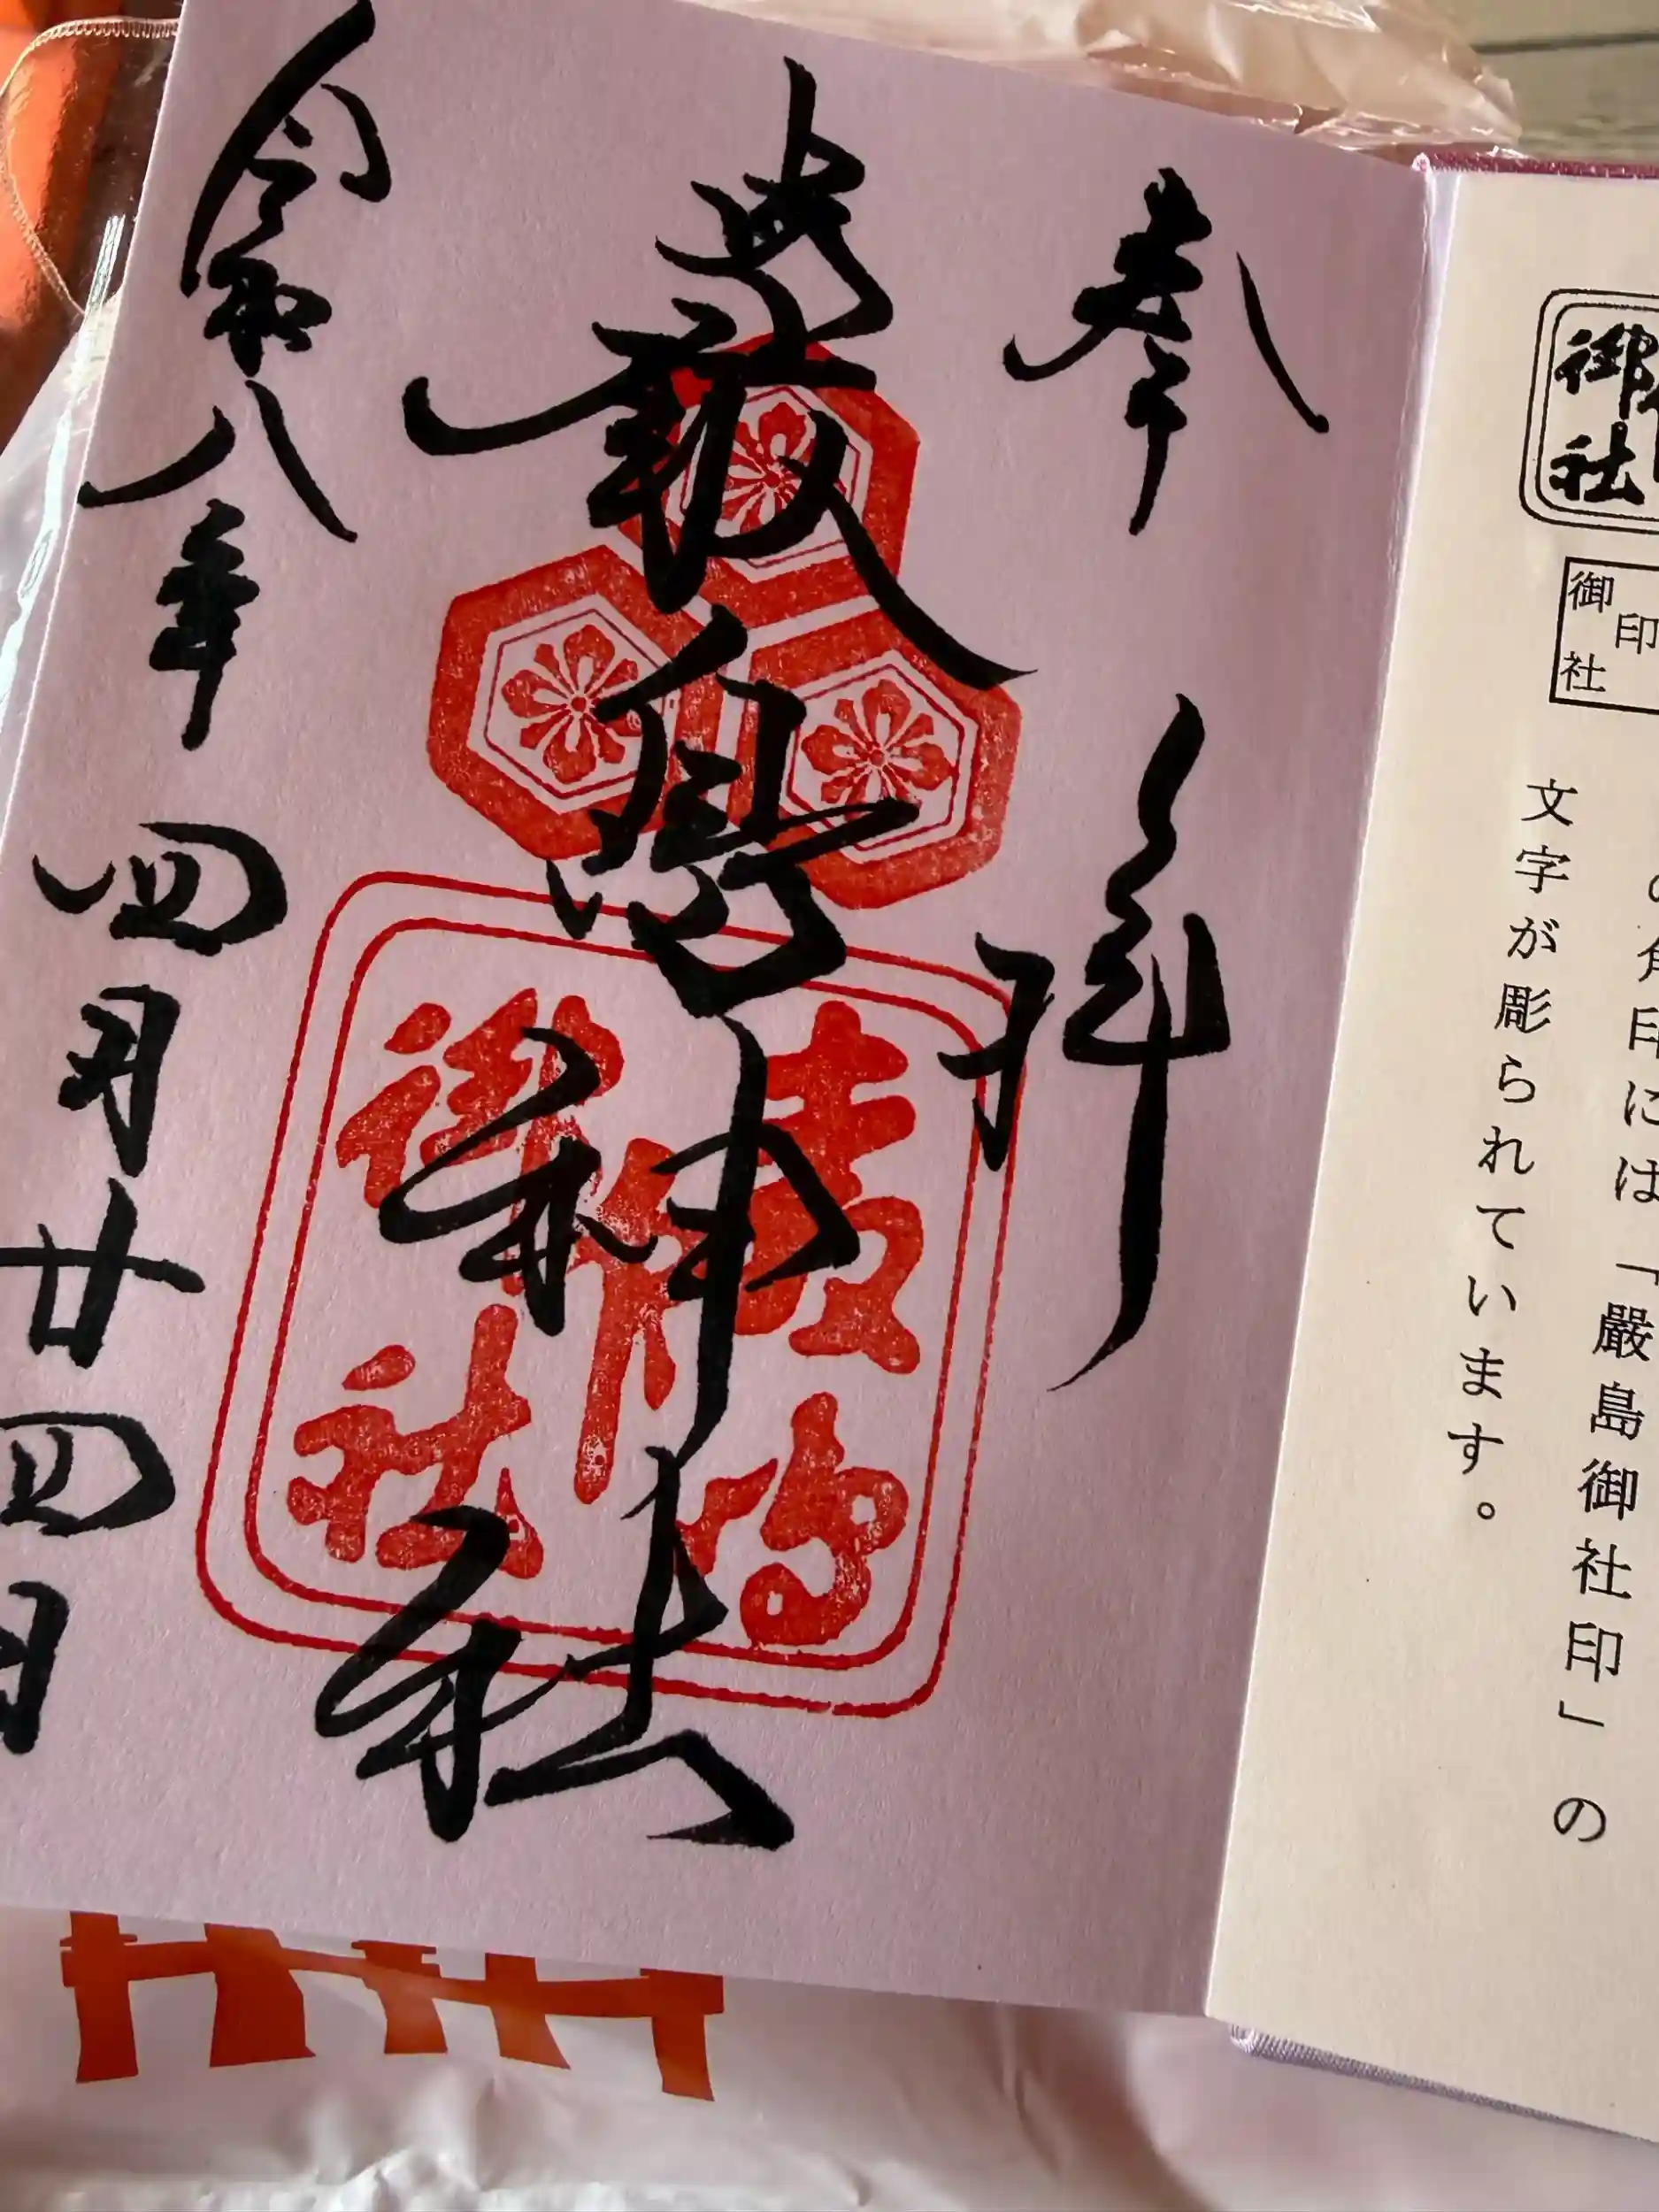 御
社
御
印
社
の角印には「嚴島御社印」の
文字が彫られています。
奉拝
嚴島神社
令和八年四月廿四日
嚴島
御社
印